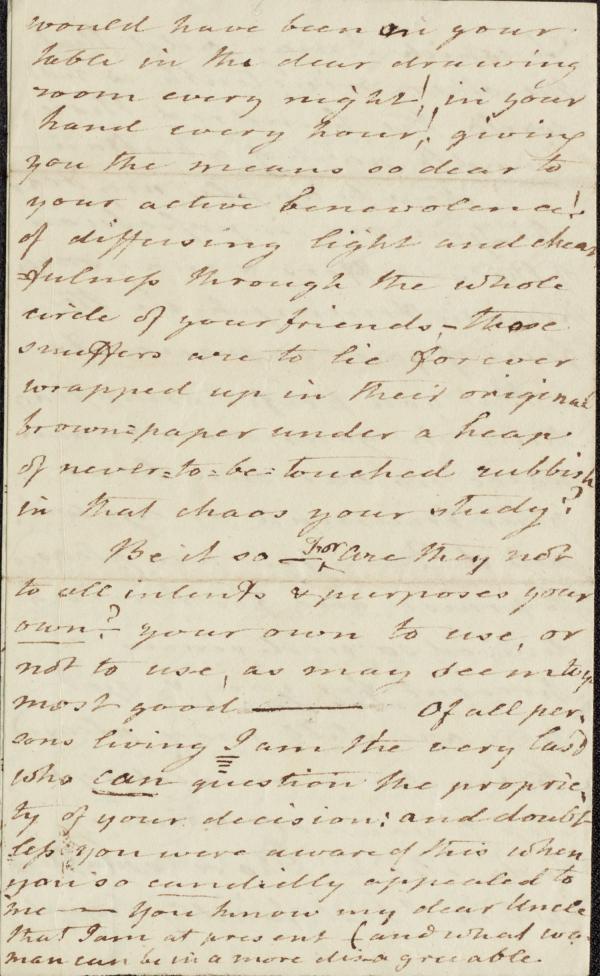 would have been on your
table in the dear drawing
room every night! in your
hand every hour! giving
you the means so dear to
your active benevolence!
of diffusing light and chear
=fulness through the whole
circle of your friends, – those
snuffers are to lie forever
wrapped up in their original
brown=paper under a heap
of never=to=be=touched rubbish
in that chaos your study?
Be it so — For are they not
to all intents & purposes your
own? – your own to use, or
not to use, as may seem to yu
most good —— Of all per-
sons living I am the very last
who can question the proprie-
ty of your decision: and doubt
less you were aware of this when
you so candidly appealed to
me — You know my dear Uncle
that I am at present (and what wo-
man can be in a more disagreeable